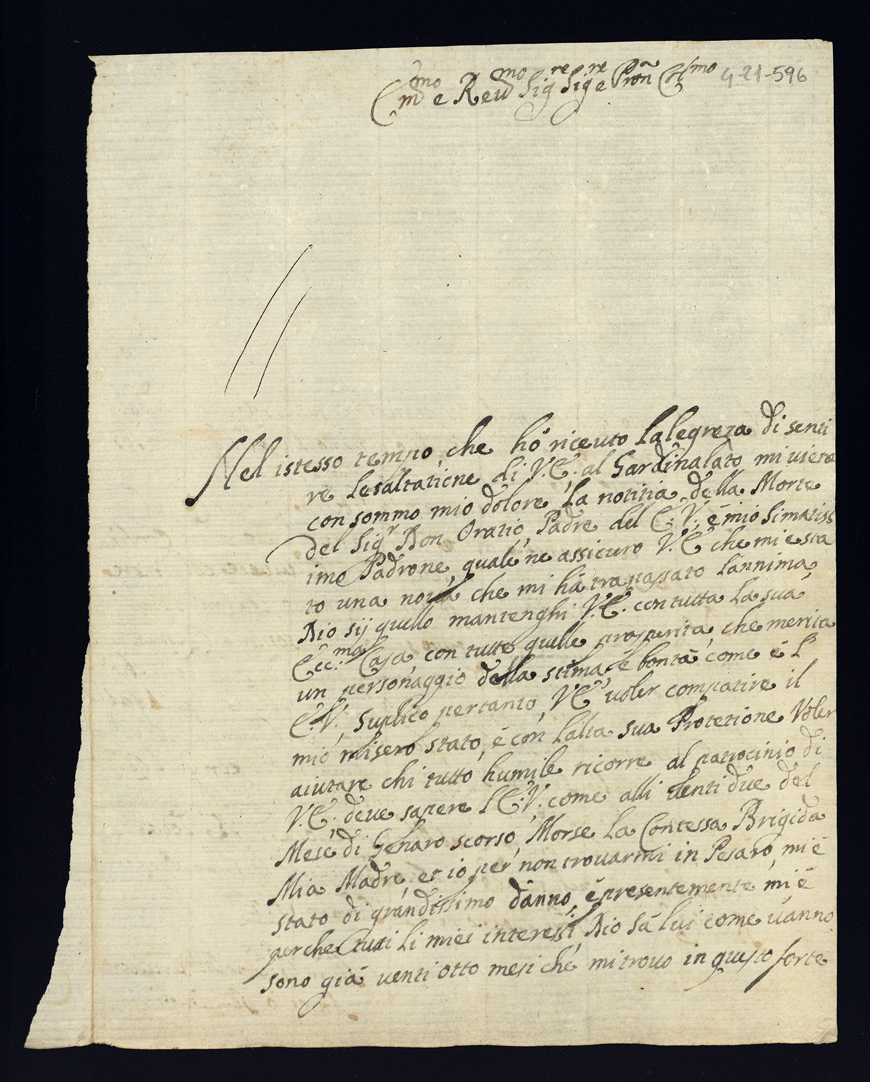 Em̃mo e Revmo Sigre Sigre Pron Colmo 4-21-596
Nel istesso tempo, che hò riceuto Lalegreza di senti
re Lesaltatione di V.E. al Gardinalato, mi uiene
con sommo mio dolore, La notitia della Morte
del Sigr Don Oratio, Padre del E.V. è mio Stimatiss
imo Padrone, quale ne assicuro V.E. che mi è sta
to una noua che mi hà trapassato Lannima
Dio sij quello mantenghi V.E. con tutta La sua
Ecc.ma Casa, con tutte quelle prosperità, che merita
un personaggio della stima, è bontà, come è L'
E.V. Suplico pertanto, V.E. uoler compatire il
mio misero stato, è con Lalta sua Protetione Voler
aiutare chi tutto humile ricorre al patrocinio di
V.E. deue sapere L'E.V. come alli Venti due del
Mese di Genaro scorso, Morse La Contessa Brigida
Mia Madre, et io per non trouarmi in Pesaro, mi è
stato di grandissimo danno, è presentemente mi è
perche tutti Li miei interessi Dio sà lui come uanno
sono già uenti otto mesi che mi trouo in questo forte